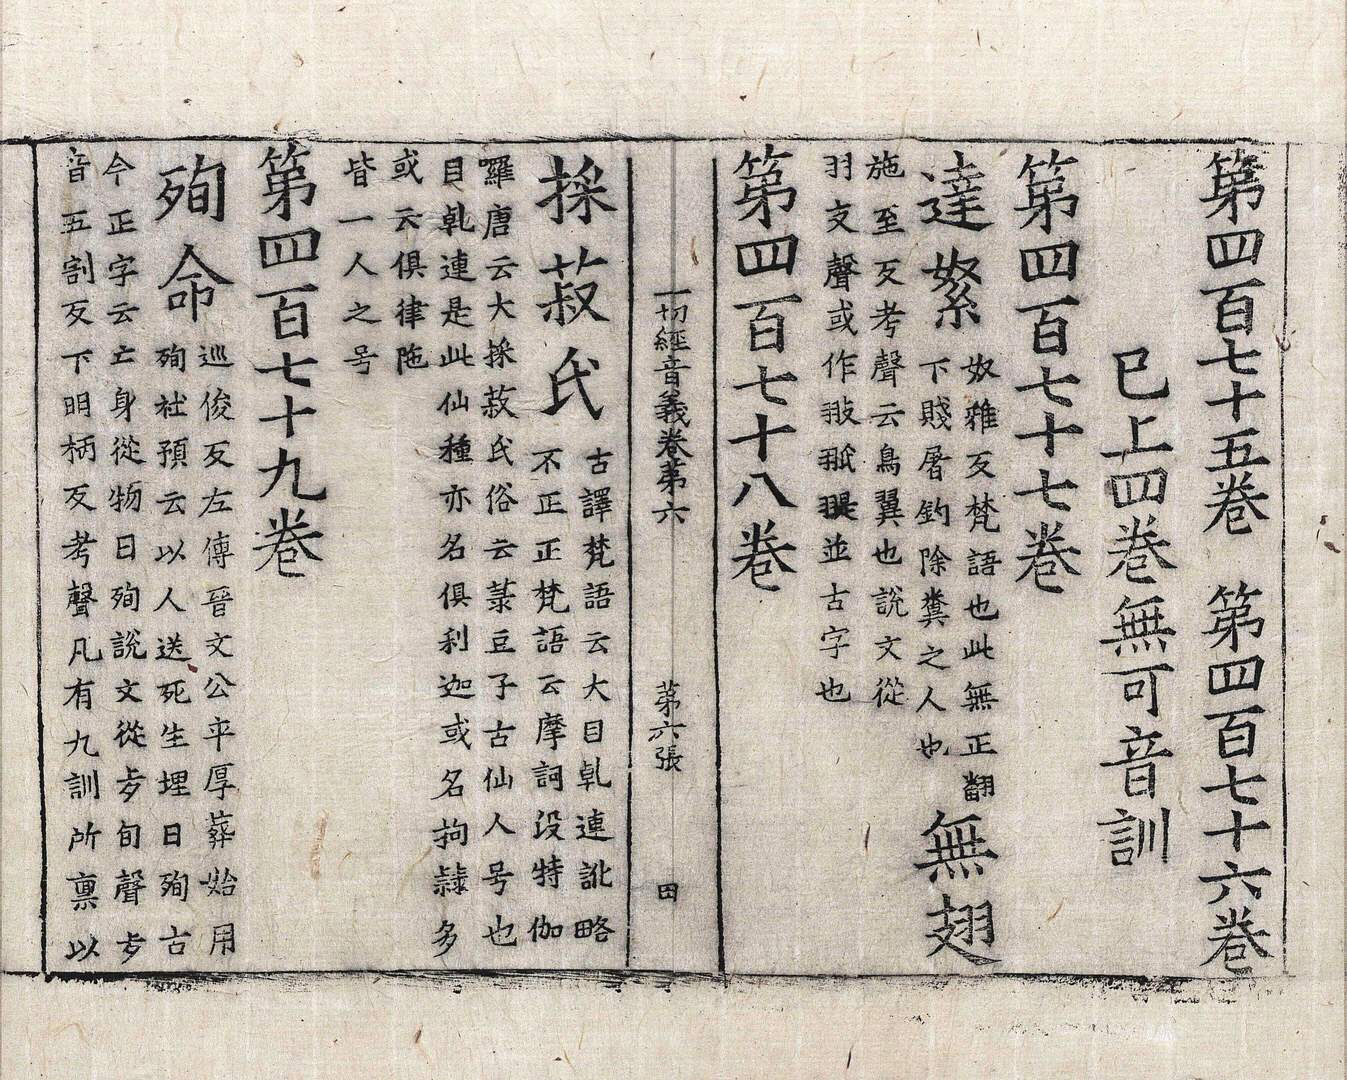 第四百七十五卷　第四百七十六卷
已上四卷無可音訓
第四百七十七卷
達絮
奴雜反梵語也此無正翻
下賤屠釣除糞之人也
無翅
施至反考聲云鳥翼也說文從
羽支聲或作翨並古字也
第四百七十八卷
一切經音義卷第六　第六張　田
採菽氏
古譯梵語云大目乹連訛略
不正正梵語云摩訶没特伽
羅唐云大採菽氏俗云菉豆子古仙人号也
目乹連是此仙種亦名俱利迦或名拘隷多
或云俱律陁
皆一人之号
第四百七十九卷
殉命
巡俊反左傳晉文公平厚葬始用
殉杜預云以人送死生埋曰殉古
今正字云亡身從物曰殉說文從歹旬聲歹
音五割反下明柄反考聲凡有九訓所稟以